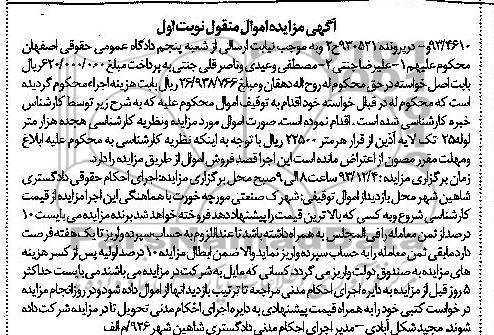 آگهی مزایده اموال منقول نوبت اول
۹۳/۴۶۱۰و- در پرونده ۹۳۰۵۲۱ج۲ و به موجب نیابت ارسالی از شعبه پنجم دادگاه عمومی حقوقی اصفهان
محکوم علیهم ۱-علیرضا جنتی ۲-مصطفی وعیدی و ناصر قلی جنتی به پرداخت مبلغ ۶۲۰/۰۰۰/۰۰۰ ریال
بابت اصل خواسته در حق محکوم له روح اله دهقان و مبلغ ۲۶/۹۳۸/۷۶۶ ریال بابت هزینه اجراء محکوم گردیده
است که محکوم له در قبال خواسته خود اقدام به توقیف اموال محکوم علیه که به شرح زیر توسط کارشناس
خبره کارشناسی شده است. اقدام نموده است. صورت اموال مورد مزایده و نظریه کارشناسی هجده هزار متر
لوله ۲۵ تک لایه آذین از قرار هر متر ۲۲۵۰۰ ریال با توجه به اینکه نظریه کارشناسی به محکوم علیه ابلاغ
و مهلت مقرر مصون از اعتراض مانده است این اجرا قصد فروش اموال از طریق مزایده را دارد.
زمان برگزاری مزایده: ۹۳/۱۲/۴ ساعت ۸ الی ۹ صبح محل برگزاری مزایده: اجرای احکام حقوقی دادگستری
شاهین شهر محل بازدید از اموال توقیفی: شهرک صنعتی مورچه خورت با هماهنگی این اجرا مزایده از قیمت
کارشناسی شروع و به کسی که بالاترین قیمت را پیشنهاد دهد فروخته خواهد شد برنده مزایده می بایست ۱۰
درصد از ثمن معامله را فی المجلس به همراه داشته باشد تا عنداللزوم به حساب سپرده واریز تا یک هفته فرصت
دارد مابقی ثمن معامله را به حساب سپرده واریز نماید والا ضمن ابطال مزایده ۱۰ درصد اولیه پس از کسر هزینه
های مزایده به صندوق دولت واریز می گردد کسانی که مایل به شرکت در مزایده می باشند می بایست حداکثر
۵ روز قبل از مزایده به دایره اجرای احکام مدنی مراجعه تا ترتیب بازدید آنها از اموال داده شود و در روز انجام مزایده
درخواست کتبی خود را به همراه قیمت پیشنهادی به دایره اجرای احکام مدنی تحویل تا در مزایده شرکت داده
شوند. مجید شکل آبادی - مدیر اجرای احکام مدنی دادگستری شاهین شهر ۹۳۶/م الف